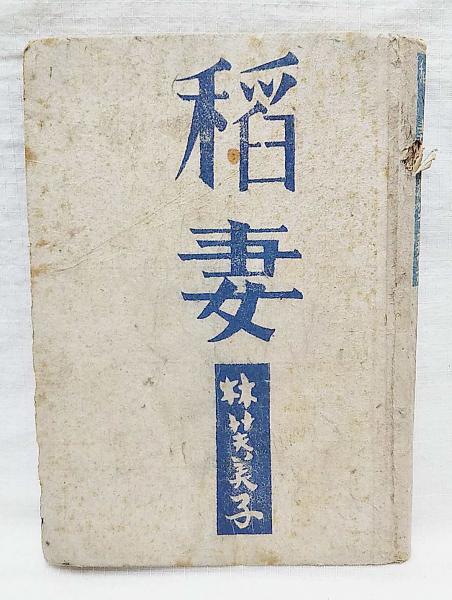 稲妻
林芙美子